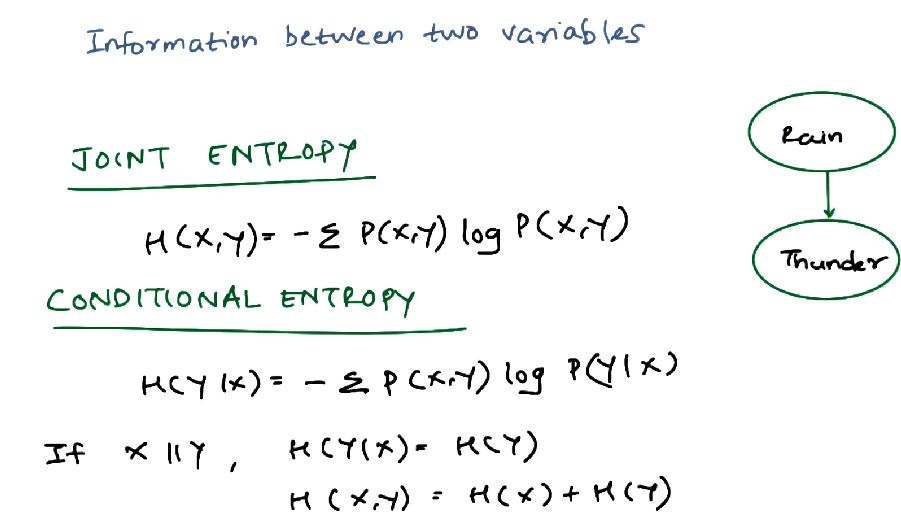 Information between two variables
JOINT ENTROPY
H(X,Y)= - Σ P(X,Y) log P(X,Y)
CONDITIONAL ENTROPY
H(Y|X)= - Σ P(X,Y) log P(Y|X)
If X ll Y, H(Y|X)= H(Y)
H(X,Y) = H(X) + H(Y)
Rain
Thunder